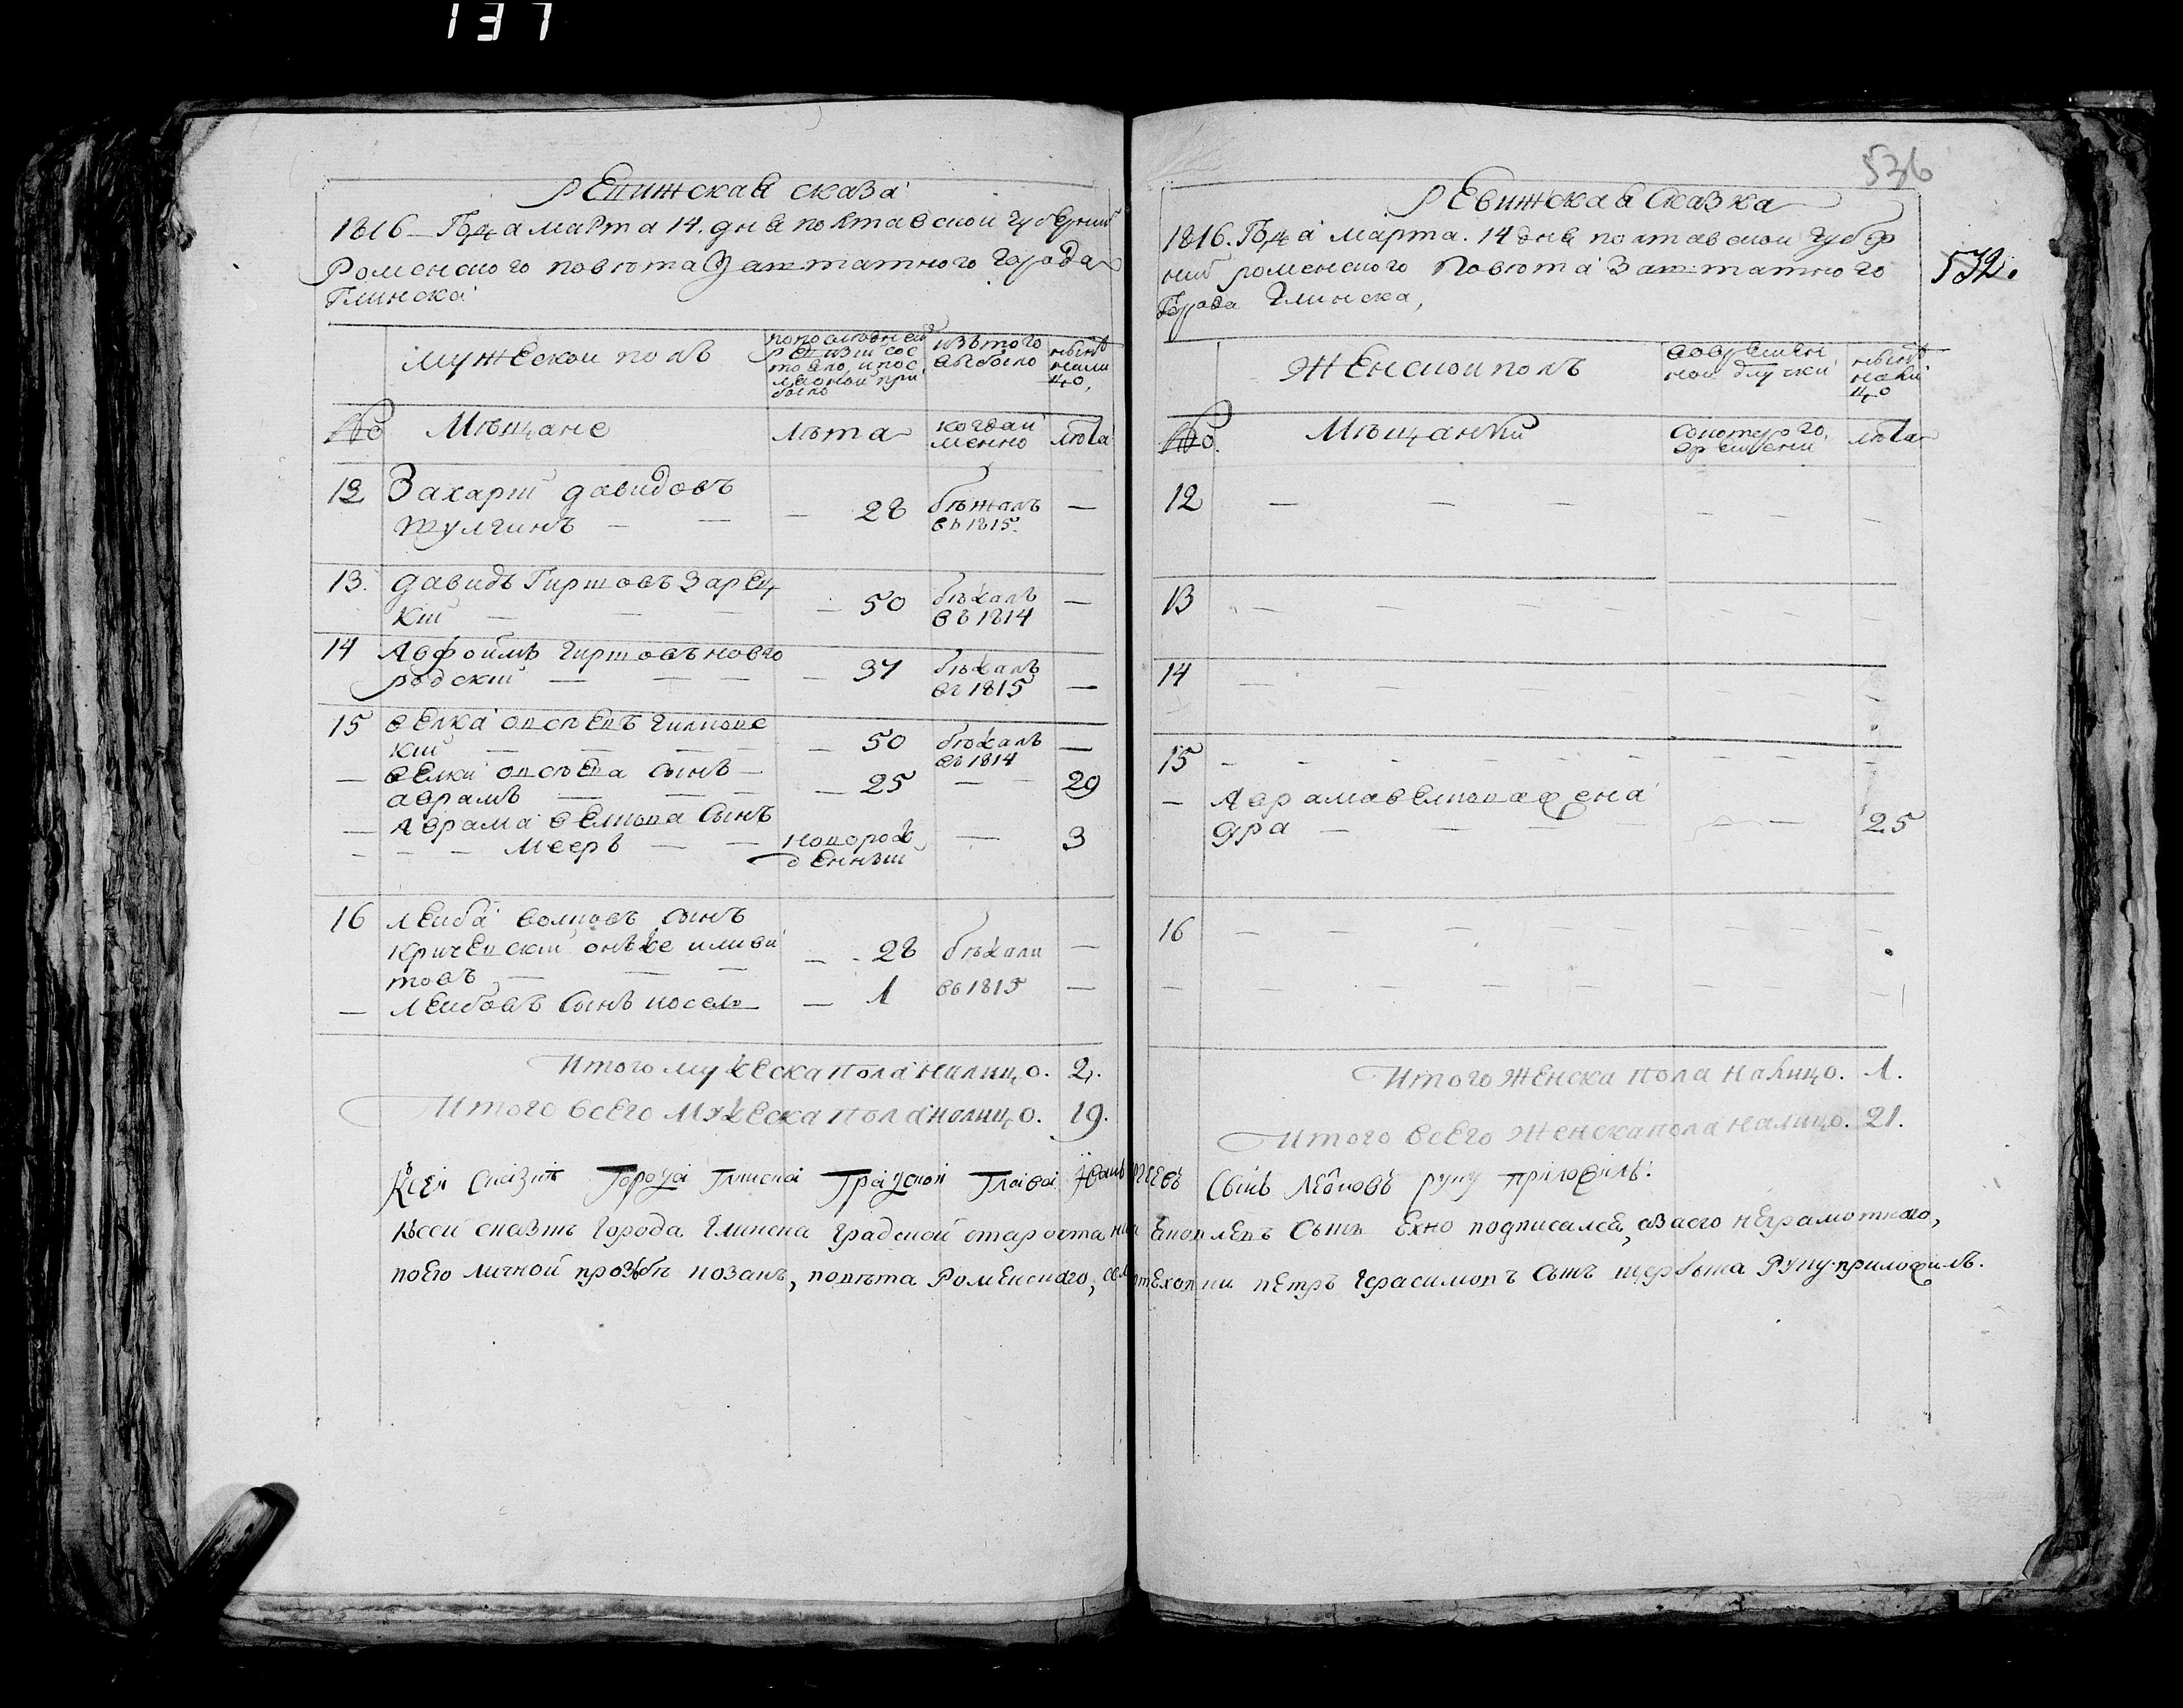 137
Ревижская сказа
1816 Года марта 14. дня полтавской губернии
Роменского повѣта Заштатного города
Глинска
Мужескои полъ
по последней ревизии состояло, и после оной прибыло
изъ того выбыло
нынѣ налицо,
№
Мѣщане
лѣта
когда именно
лѣта
12 Захарий давидовъ
Шулгинъ — — — 28 бѣжалъ въ 1815. —
13. давидъ Гиршовъ Зарец
кий — — — 50 бѣжалъ въ 1814 —
14 Авфоимъ гиршовъ новго
родский — — — 37 бѣжалъ въ 1815 —
15 велка
кий — — — 50 бѣжалъ въ 1814 —
— велки сынъ —
аврамъ — — — 25 — — 29
— Аврама велкова сынъ
— — — Мееръ — — новорож
денный — 3
16 Леиба волковъ сынъ
Кричевский онъже
— — — 28 бѣжали —
— Леибовъ сынъ — 1 въ 1815 —
Итого мужеска пола налицо. 2.
Итого всего мужеска пола налицо. 19.
536
532.
Ревижская Сказка
1816. Года марта. 14 дня полтавской губер
нии роменского Повѣта Заштатного
Города Глинска,
Женской полъ
во временной отлучки
нынѣ налицо
№.
Мѣщанки
с которого времени
лѣта
12 — — — — — —
13 — — — — — —
14 — — — — — —
15 — — — — — —
— Аврама велкова жена
Дра — — — — 25
16 — — — — — —
— — — — — —
Итого Женска пола налицо. 1.
Итого всего Женска пола налицо. 21.
К сей сказкѣ Города Глинска Градской Глава Иванъ Сынъ Леоновъ руку приложилъ.
К сей сказкѣ города Глинска градской староста Сынъ Ехно подписался, а за его неграмотного,
по его личной прозьбѣ козакъ, повѣта Роменского, села петръ герасимовъ сынъ щербина Руку приложилъ.